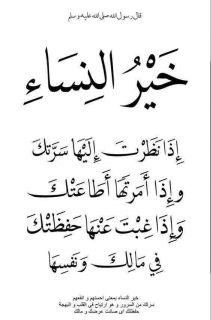 قال رسول الله صلى الله عليه وسلم
خَيْرُ النِسَاءِ
إِذَا نَظَرْتَ إِلَيْهَا سَرَّتكَ
وإِذَا أَمَرتَهَا أَطَاعَتْكَ
وَإِذَا غِبْتَ عَنْهَا حَفِظَتْكَ
فِي مَالِكَ وَنَفسِهَا
خير النساء بمعنى احسنهم و انفعهم
سرتك من السرور و هو ارتياح في القلب و البهجة
حفظتك اي صانت عرضك و مالك